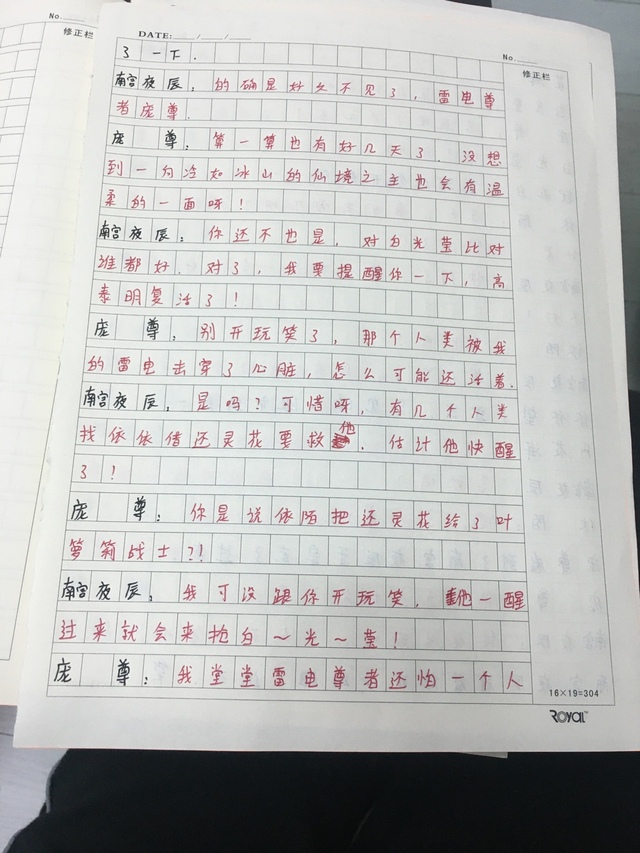 No.
修正栏
DATE: / /
No.
修正栏
了一下.
南宫夜辰：的确是好久不见了，雷电尊
者庞尊.
庞 尊：算一算也有好几天了.没想
到一向冷如冰山的仙境之主也会有温
柔的一面呀！
南宫夜辰：你还不也是，对白光莹比对
谁都好.对了，我要提醒你一下，高
泰明复活了！
庞 尊：别开玩笑了，那个人类被我
的雷电击穿了心脏，怎么可能还活着.
南宫夜辰：是吗？可惜呀，有几个人类
找依依借还灵花要救他.估计他快醒
了！
庞 尊：你是说依陌把还灵花给了叶
萝莉战士？！
南宫夜辰：我可没跟你开玩笑，他一醒
过来就会来抢白～光～莹！
庞 尊：我堂堂雷电尊者还怕一个人
16×19=304
ROYAL